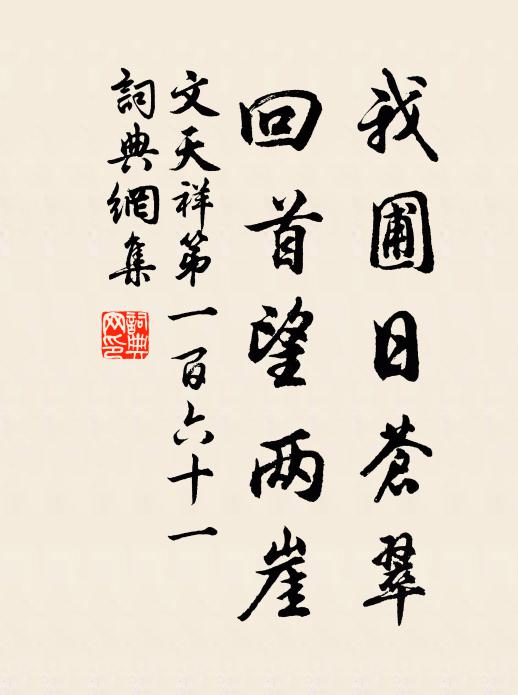 我圃日蒼翠
回首望两崖
文天祥第一百六十一
詞典網集
詞典网印